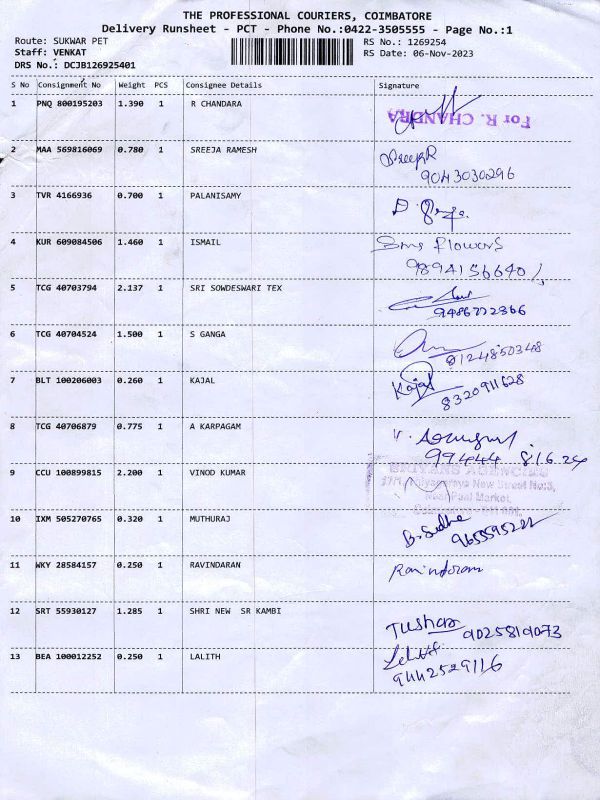 THE PROFESSIONAL COURIERS, COIMBATORE
Delivery Runsheet - PCT - Phone No.:0422-3505555 - Page No.:1
Route: SUKWAR PET
Staff: VENKAT
DRS No.: DCJB126925401
RS No.: 1269254
RS Date: 06-Nov-2023
S No Consignment No Weight PCS Consignee Details Signature
1 PNQ 800195203 1.390 1 R CHANDARA For R. CHANDRA
2 MAA 569816069 0.780 1 SREEJA RAMESH SreejaR
9043030296
3 TVR 4166936 0.700 1 PALANISAMY
4 KUR 609084506 1.460 1 ISMAIL Sms Flowers
9894156640
5 TCG 40703794 2.137 1 SRI SOWDESWARI TEX
9486772366
6 TCG 40704524 1.500 1 S GANGA
8124850348
7 BLT 100206003 0.260 1 KAJAL Kajal
8320911628
8 TCG 40706879 0.775 1 A KARPAGAM
99444 816.24
9 CCU 100899815 2.200 1 VINOD KUMAR
10 IXM 505270765 0.320 1 MUTHURAJ B. Sudha
11 WKY 28584157 0.250 1 RAVINDARAN Ravindaran
12 SRT 55930127 1.285 1 SHRI NEW SR KAMBI
Tushar 9025819073
13 BEA 100012252 0.250 1 LALITH Lalith
9442529116